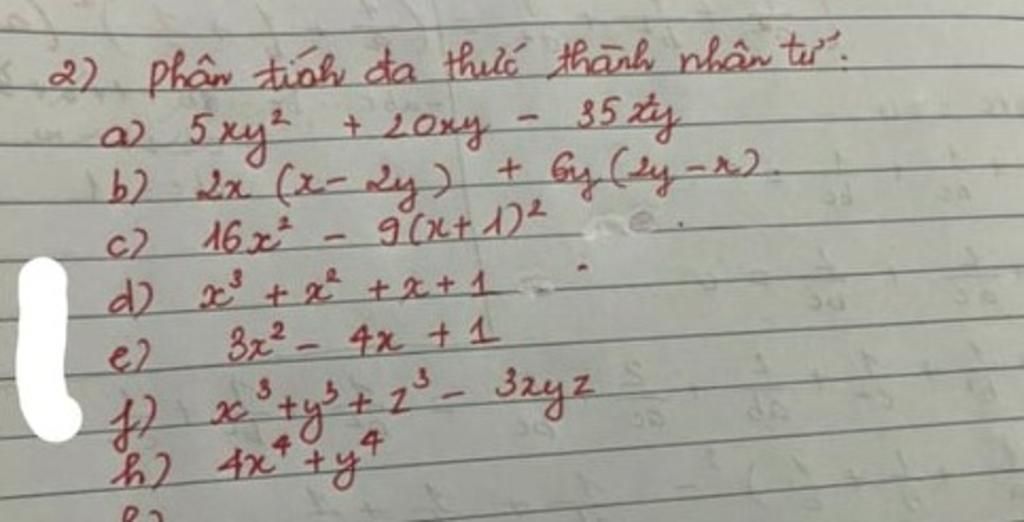 2) Phân tích đa thức thành nhân tử:
a) 5xy² + 20xy - 35x²y
b) 2x (x - 2y) + 6y (2y - x).
c) 16x² - 9(x+1)²
d) x³ + x² + x + 1
e) 3x² - 4x + 1
f) x³ + y³ + z³ - 3xyz
h) 4x⁴ + y⁴